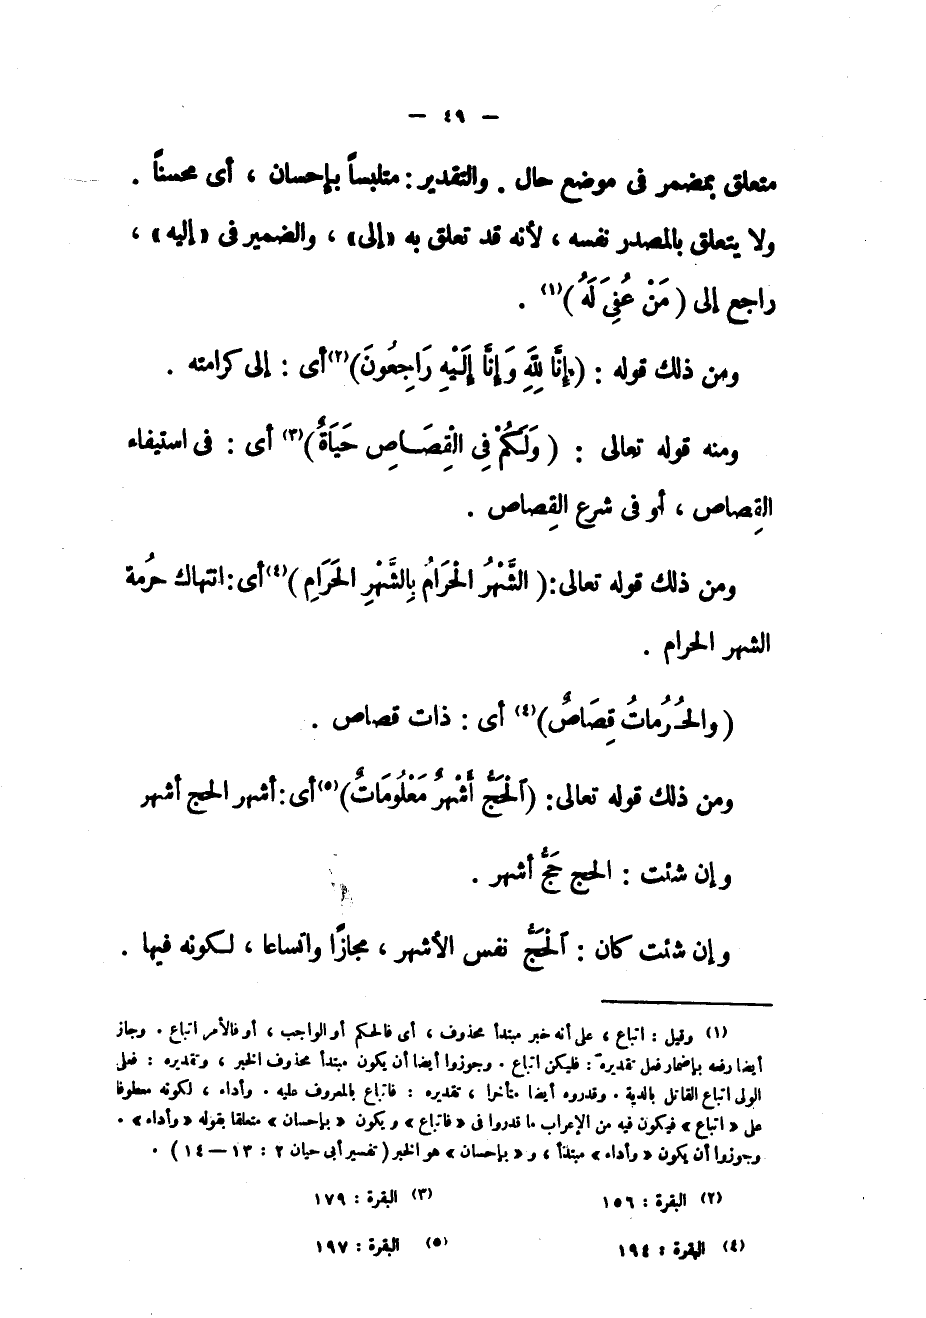 — ٤٩ —
متعلق بمضمر فى موضع حال . والتقدير : متلبساً بإحسان ، أى محسناً .
ولا يتعلق بالمصدر نفسه ، لأنه قد تعلق به «إلى» ، والضمير فى «إليه» ،
راجع إلى ( مَنْ عُفِىَ لَهُ )(١) .
ومن ذلك قوله : ( إِنَّا لِلَّهِ وَإِنَّا إِلَيْهِ رَاجِعُونَ)(٢) أى : إلى كرامته .
ومنه قوله تعالى : ( وَلَكُمْ فِى الْقِصَاصِ حَيَاةٌ)(٣) أى : فى استيفاء
القِصاص ، أو فى شرع القِصاص .
ومن ذلك قوله تعالى:( الشَّهْرُ الْحَرَامُ بِالشَّهْرِ الْحَرَامِ )(٤) أى : انتهاك حرُمة
الشهر الحرام .
( والحُرُماتُ قِصَاصٌ)(٤) أى : ذات قصاص .
ومن ذلك قوله تعالى: (اَلْحَجُّ أَشْهُرٌ مَعْلُومَاتٌ)(٥) أى : أشهر الحج أشهر
وإن شئت : الحج حَجُّ أشهر .
وإن شئت كان : اَلْحَجُّ نفس الأشهر ، مجازًا واتساعا ، لكونه فيها .
(١) وقيل : اتباع ، على أنه خبر مبتدأ محذوف ، أى فالحكم أو الواجب ، أو فالأمر اتباع . وجاز
أيضا رفعه بإضمار فعل تقديره : فليكن اتباع . وجوزوا أيضا أن يكون مبتدأ محذوف الخبر ، وتقديره : فعلى
الولى اتباع القاتل بالدية . وقدروه أيضا متأخرا ، تقديره : فاتباع بالمعروف عليه . وأداء ، لكونه معطوفا
على « اتباع » فيكون فيه من الإعراب ما قدروا فى « فاتباع » ويكون « بإحسان » متعلقا بقوله « وأداء » .
وجوزوا أن يكون « وأداء » مبتدأ ، و « بإحسان » هو الخبر ( تفسير أبى حيان ٢ : ١٣ — ١٤ ) .
(٢) البقرة : ١٥٦ (٣) البقرة : ١٧٩
(٤) البقرة : ١٩٤ (٥) البقرة : ١٩٧